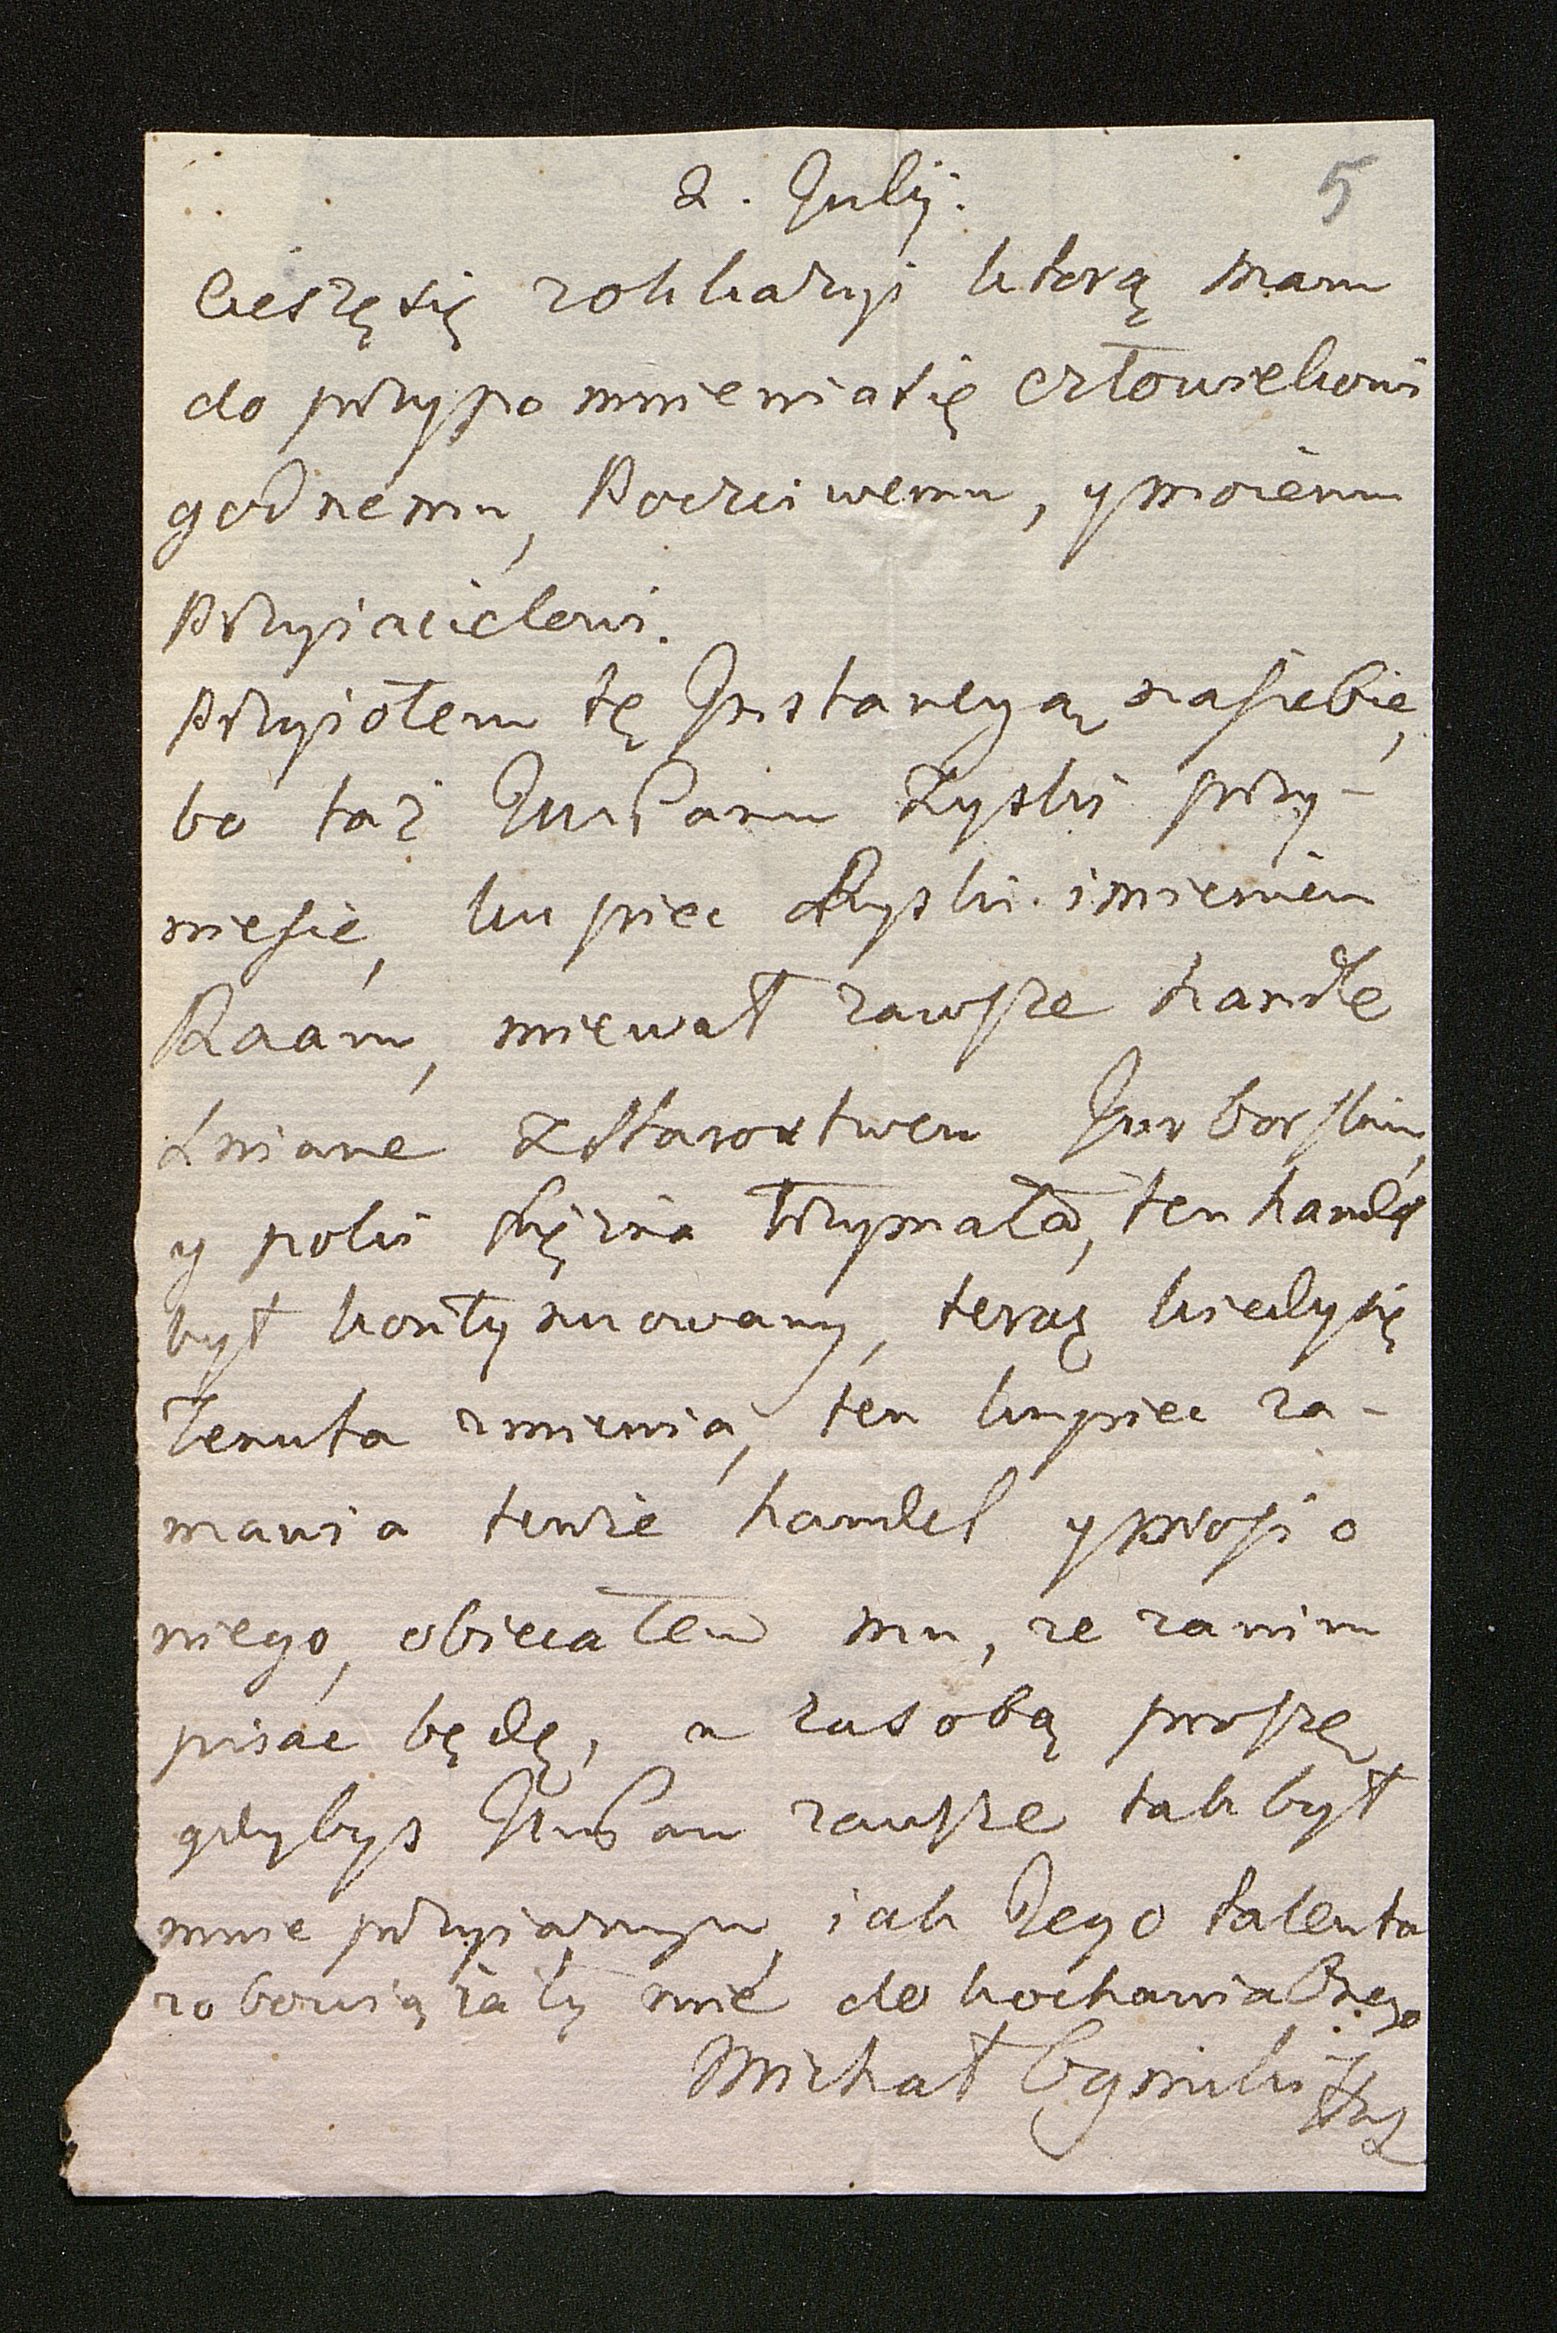 2. Julij. 5
Cieszę się zokkazyi ktorą mam
do przypomnienia się człowiekowi
godnemu, Poczciwemu, y moiemu
Przyiacielowi.
Przyiołem tę Jnstancyą nasiebie,
bo taż JmcPanu zyski przy-
niesie, kupiec Ryski imieniem
Raam, miewał zawsze handle
Lniane zStarostwem Jurborskim,
y poki Xiężna trzymała, ten handel
był kontynuowany, teraz kiedy się
Tenuta zmienia, ten kupiec za-
mawia tenże handel y prosi o
niego, obiecałem mu, ze zanim
pisac będę, a zasobą proszę
gdybys JmcPan zawsze tak był
mnie przyiaznym, iak Jego talenta
zobowiązały mie do kochania Onego
Michał Ogiński HWL